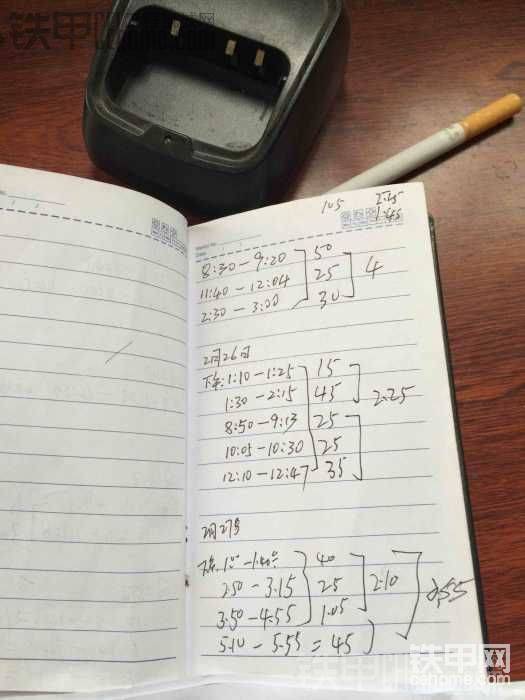 铁甲
cehome.com
105 2.25
1.45
8:30 - 9:20 50
11:40 - 12:04 25 4
2:30 - 3:00 30
2月26日
下午:1:10 - 1:25 15
1:30 - 2:15 45 2.25
8:50 - 9:13 25
10:05 - 10:30 25
12:10 - 12:47 35
2月27号
40
2.50 - 3.15 25 2.10
3.50 - 4.55 1.05
5.10 - 5.55 = 45
铁甲网
cehome.com